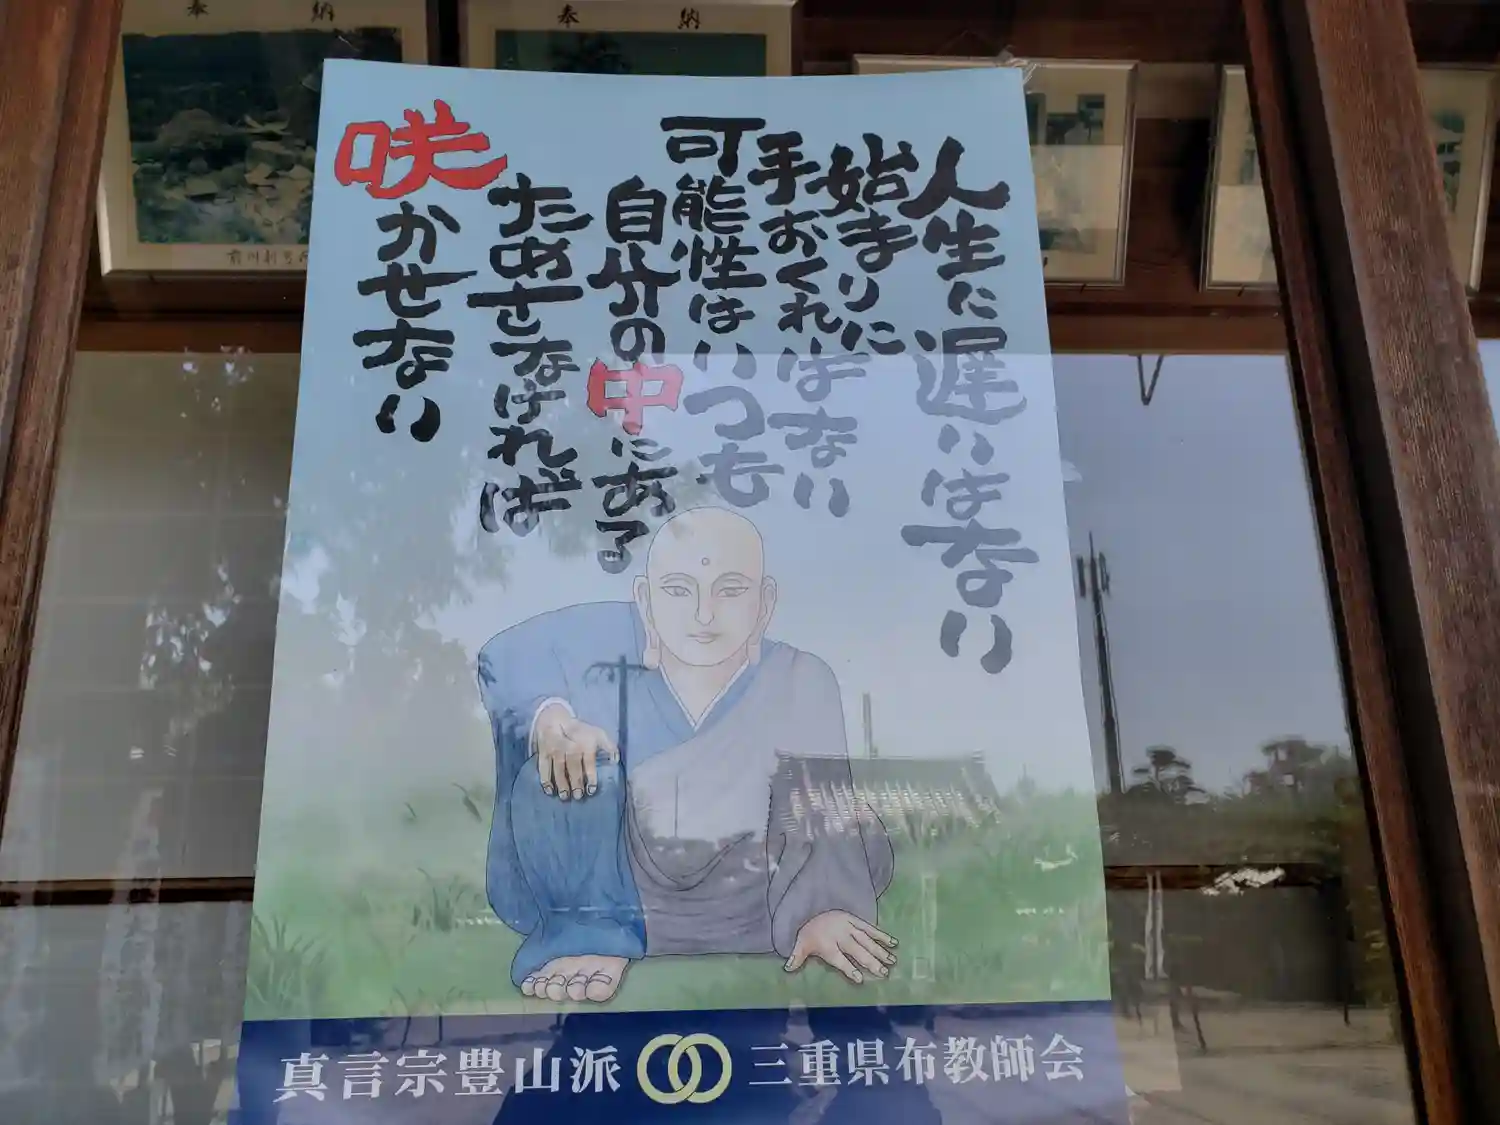 人生に遅いはない
始まりに
手おくれはない
可能性はいつも
自分の中にある
たあさなければ
咲かせない
真言宗豊山派 三重県布教師会
奉納
奉納